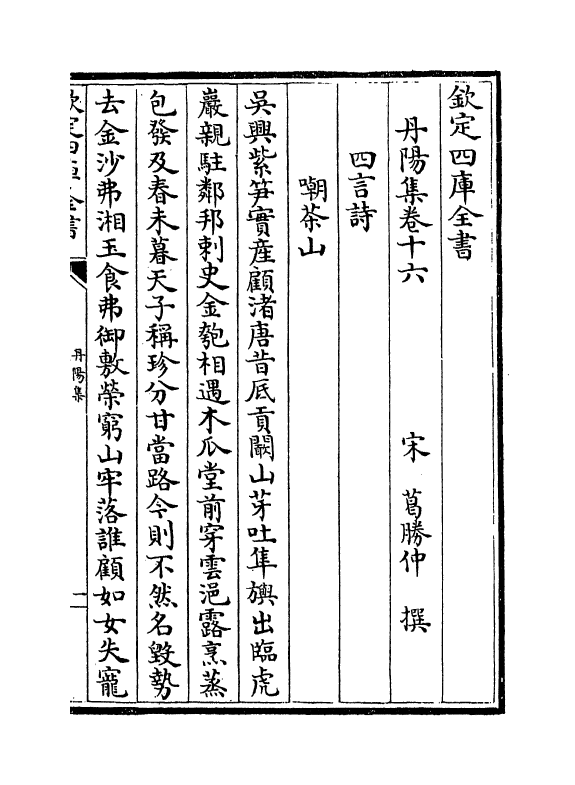 欽定四庫全書
丹陽集卷十六　　　宋　葛勝仲　撰
四言詩
嘲茶山
吳興紫笋實産顧渚唐昔底貢闞山芽吐隼旟出臨虎
巖親駐鄰邦刺史金匏相遇木瓜堂前穿雲浥露烹蒸
包發及春未暮天子稱珍分甘當路今則不然名毀勢
去金沙弗湘玉食弗御敷榮窮山牢落誰顧如女失寵
丹陽集